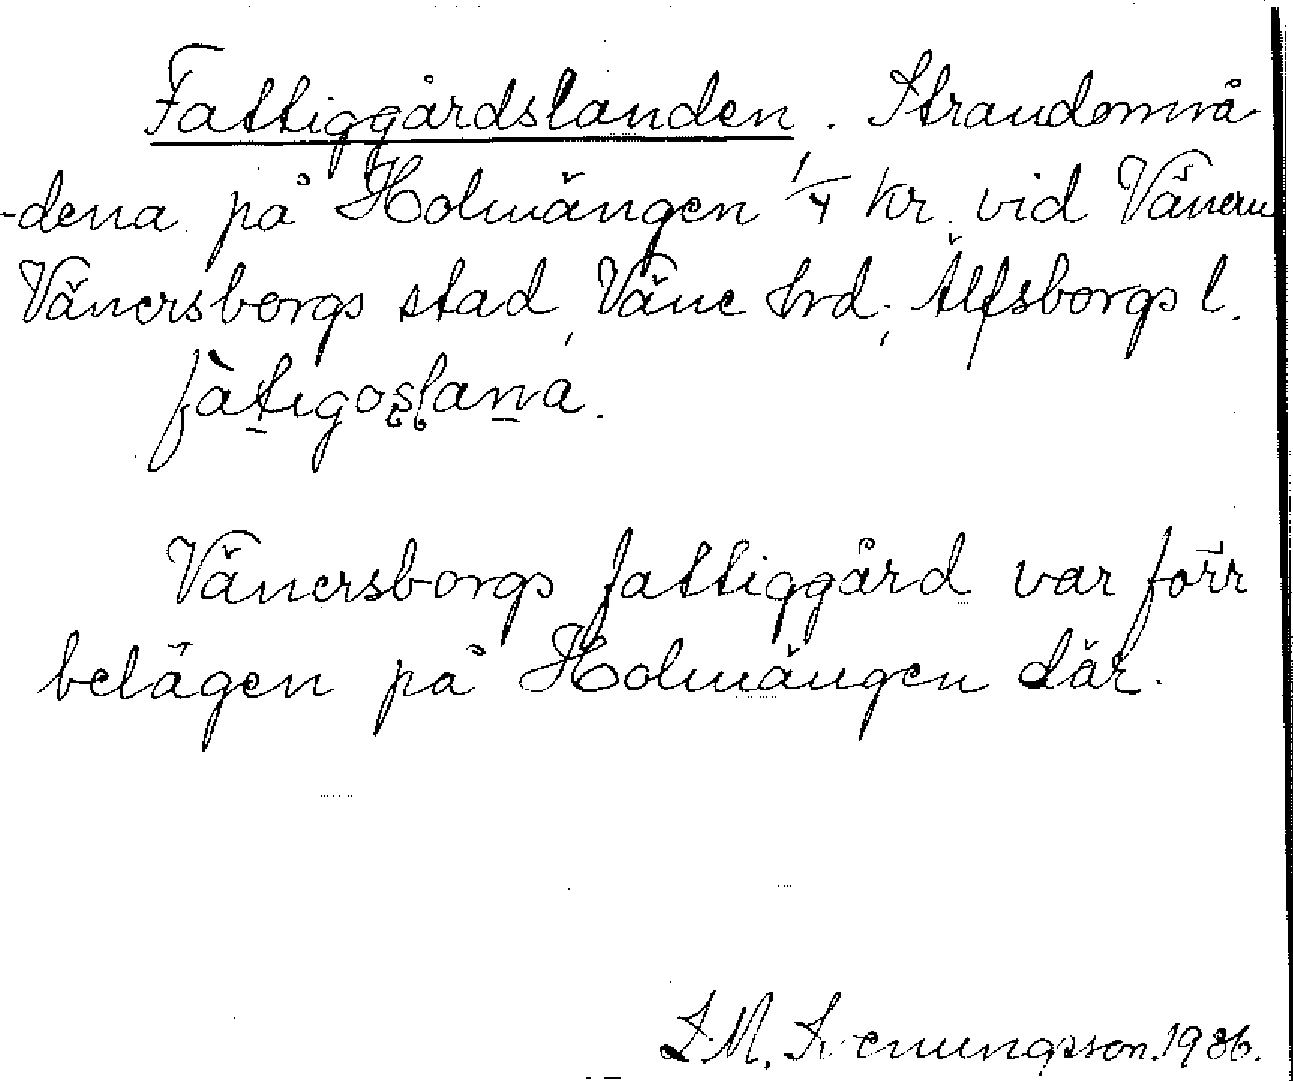 Fattiggårdslanden. Strandområ
-dena på Holmängen 1/4 kv. vid Vänern
Vänersborgs stad, Väne hrd; Älfsborgs l.
fàtigoșlana.
Vänersborgs fattiggård var förr
belägen på Holmängen där.
1936.